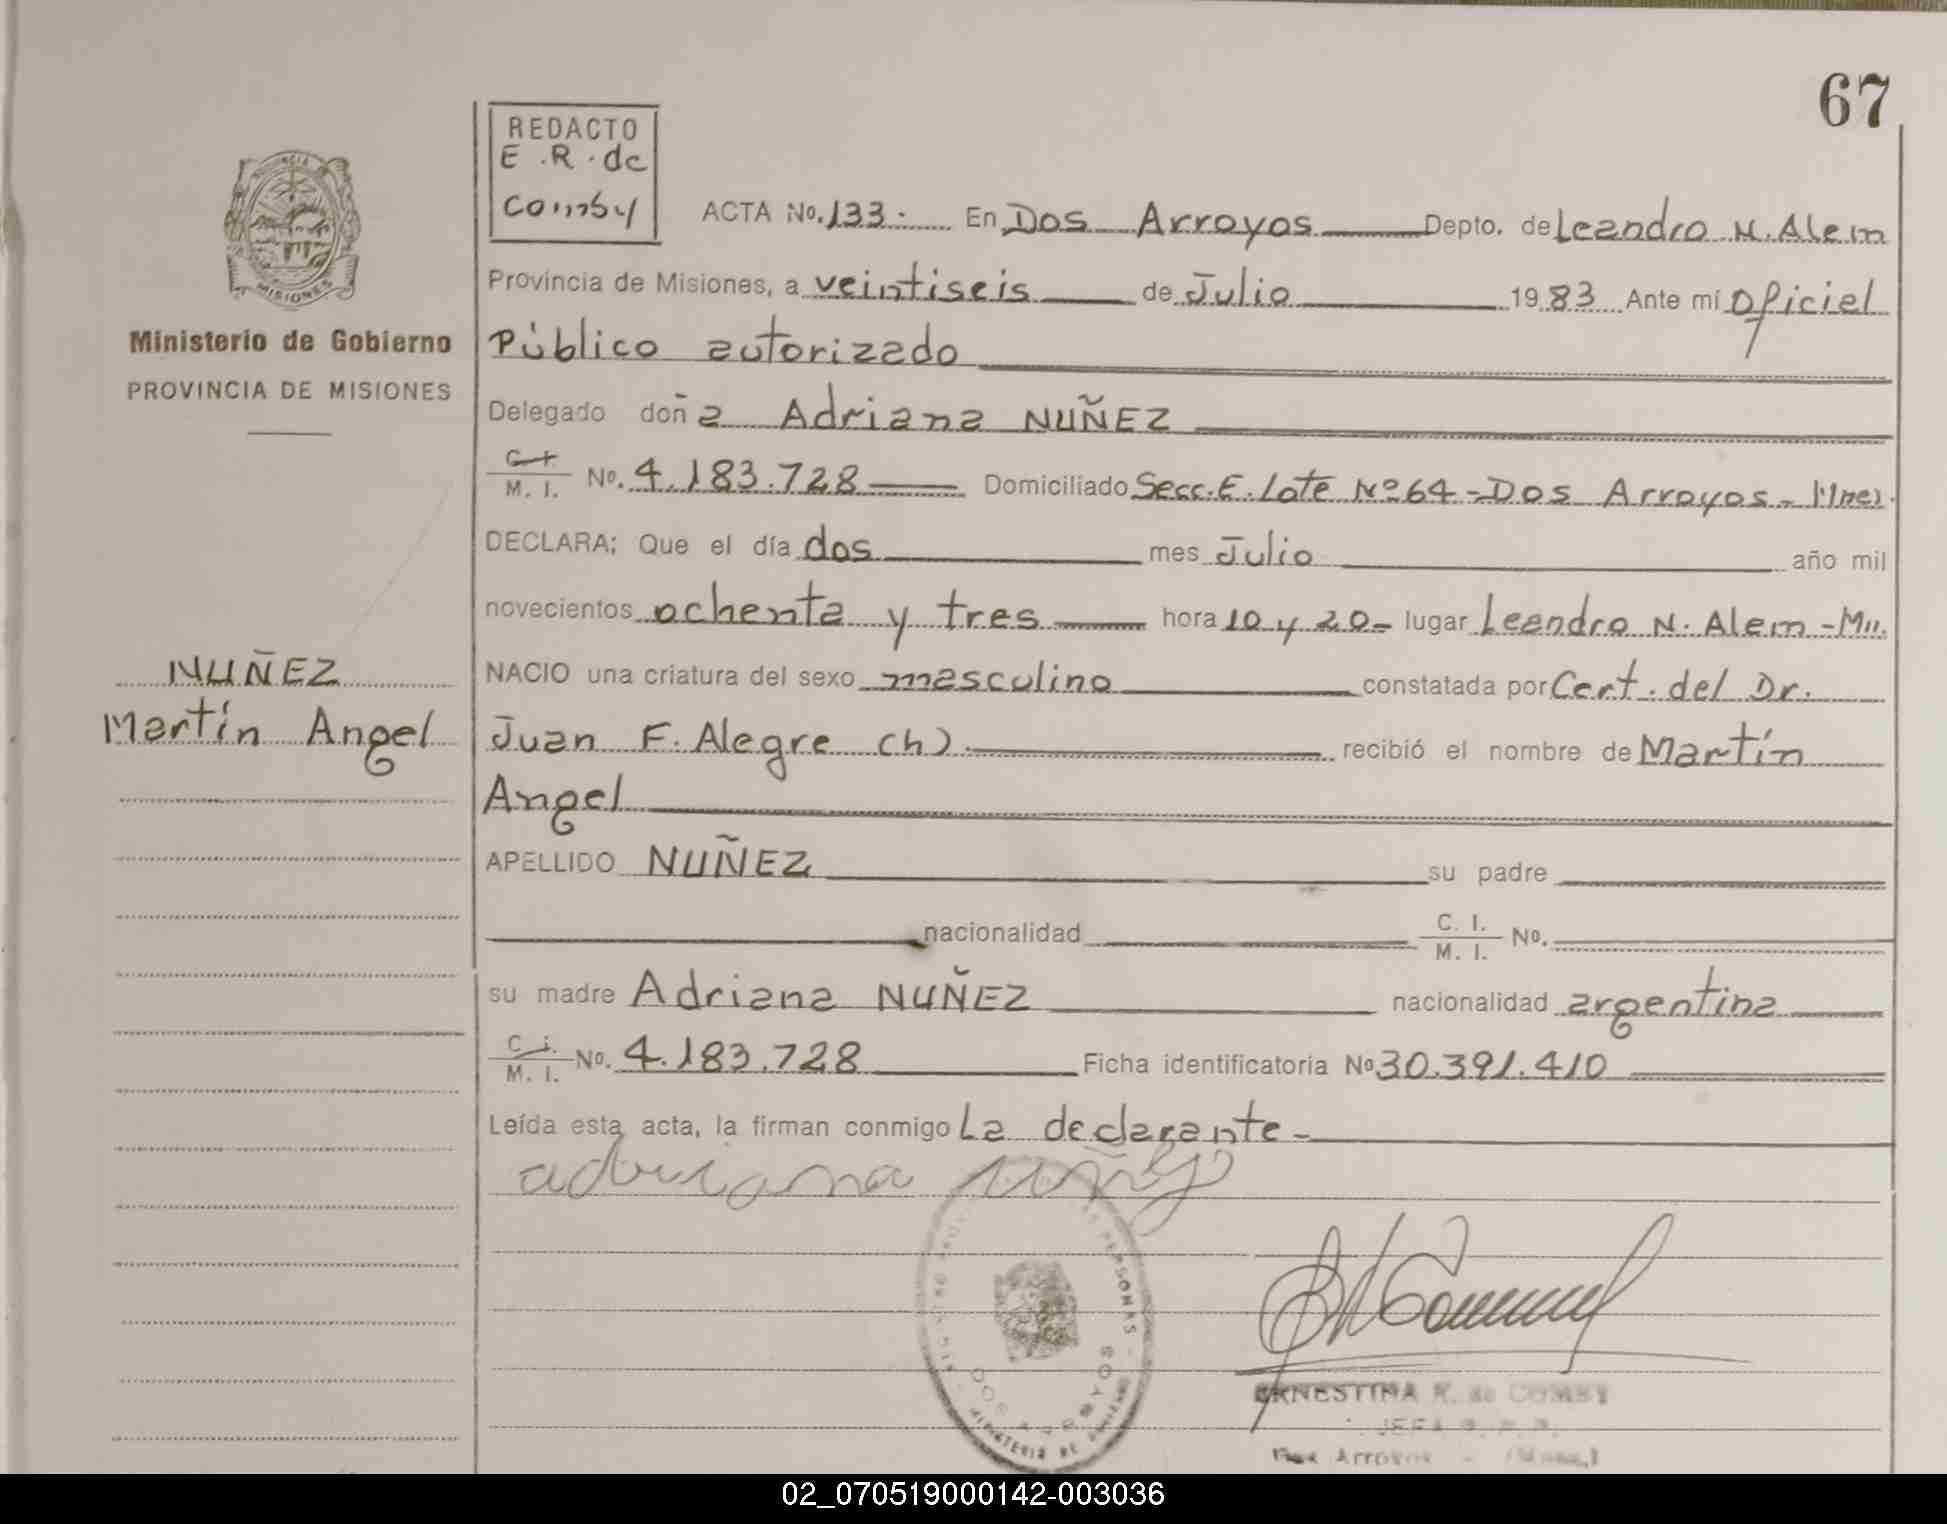 67
REDACTO
E.R. de
Comby
ACTA No. 133.- En Dos Arroyos Depto. de Leandro N. Alem
Provincia de Misiones, a veintiseis de Julio 1983 Ante mí Oficial
Ministerio de Gobierno
PROVINCIA DE MISIONES
Público autorizado
Delegado doña Adriana NUÑEZ
C. I. / M. I. No. 4.183.728 Domiciliado Secc. E. Lote Nº 64 - Dos Arroyos - Mnes.
DECLARA; Que el día dos mes Julio año mil
novecientos ochenta y tres hora 10 y 20- lugar Leandro N. Alem - Mn.
NUÑEZ
Martín Angel
NACIO una criatura del sexo masculino constatada por Cert. del Dr.
Juan F. Alegre (h) recibió el nombre de Martín
Angel
APELLIDO NUÑEZ su padre
nacionalidad C. I. / M. I. No.
su madre Adriana NUÑEZ nacionalidad argentina
C. I. / M. I. No. 4.183.728 Ficha identificatoria No 30.391.410
Leída esta acta, la firman conmigo La declarante-
adriana nuñez
ERNESTINA R. de COMBY
JEFA
Dos Arroyos - (Mnes.)
MINISTERIO DE GOBIERNO
DOS ARROYOS
PERSONAS
MISIONES
02_070519000142-003036